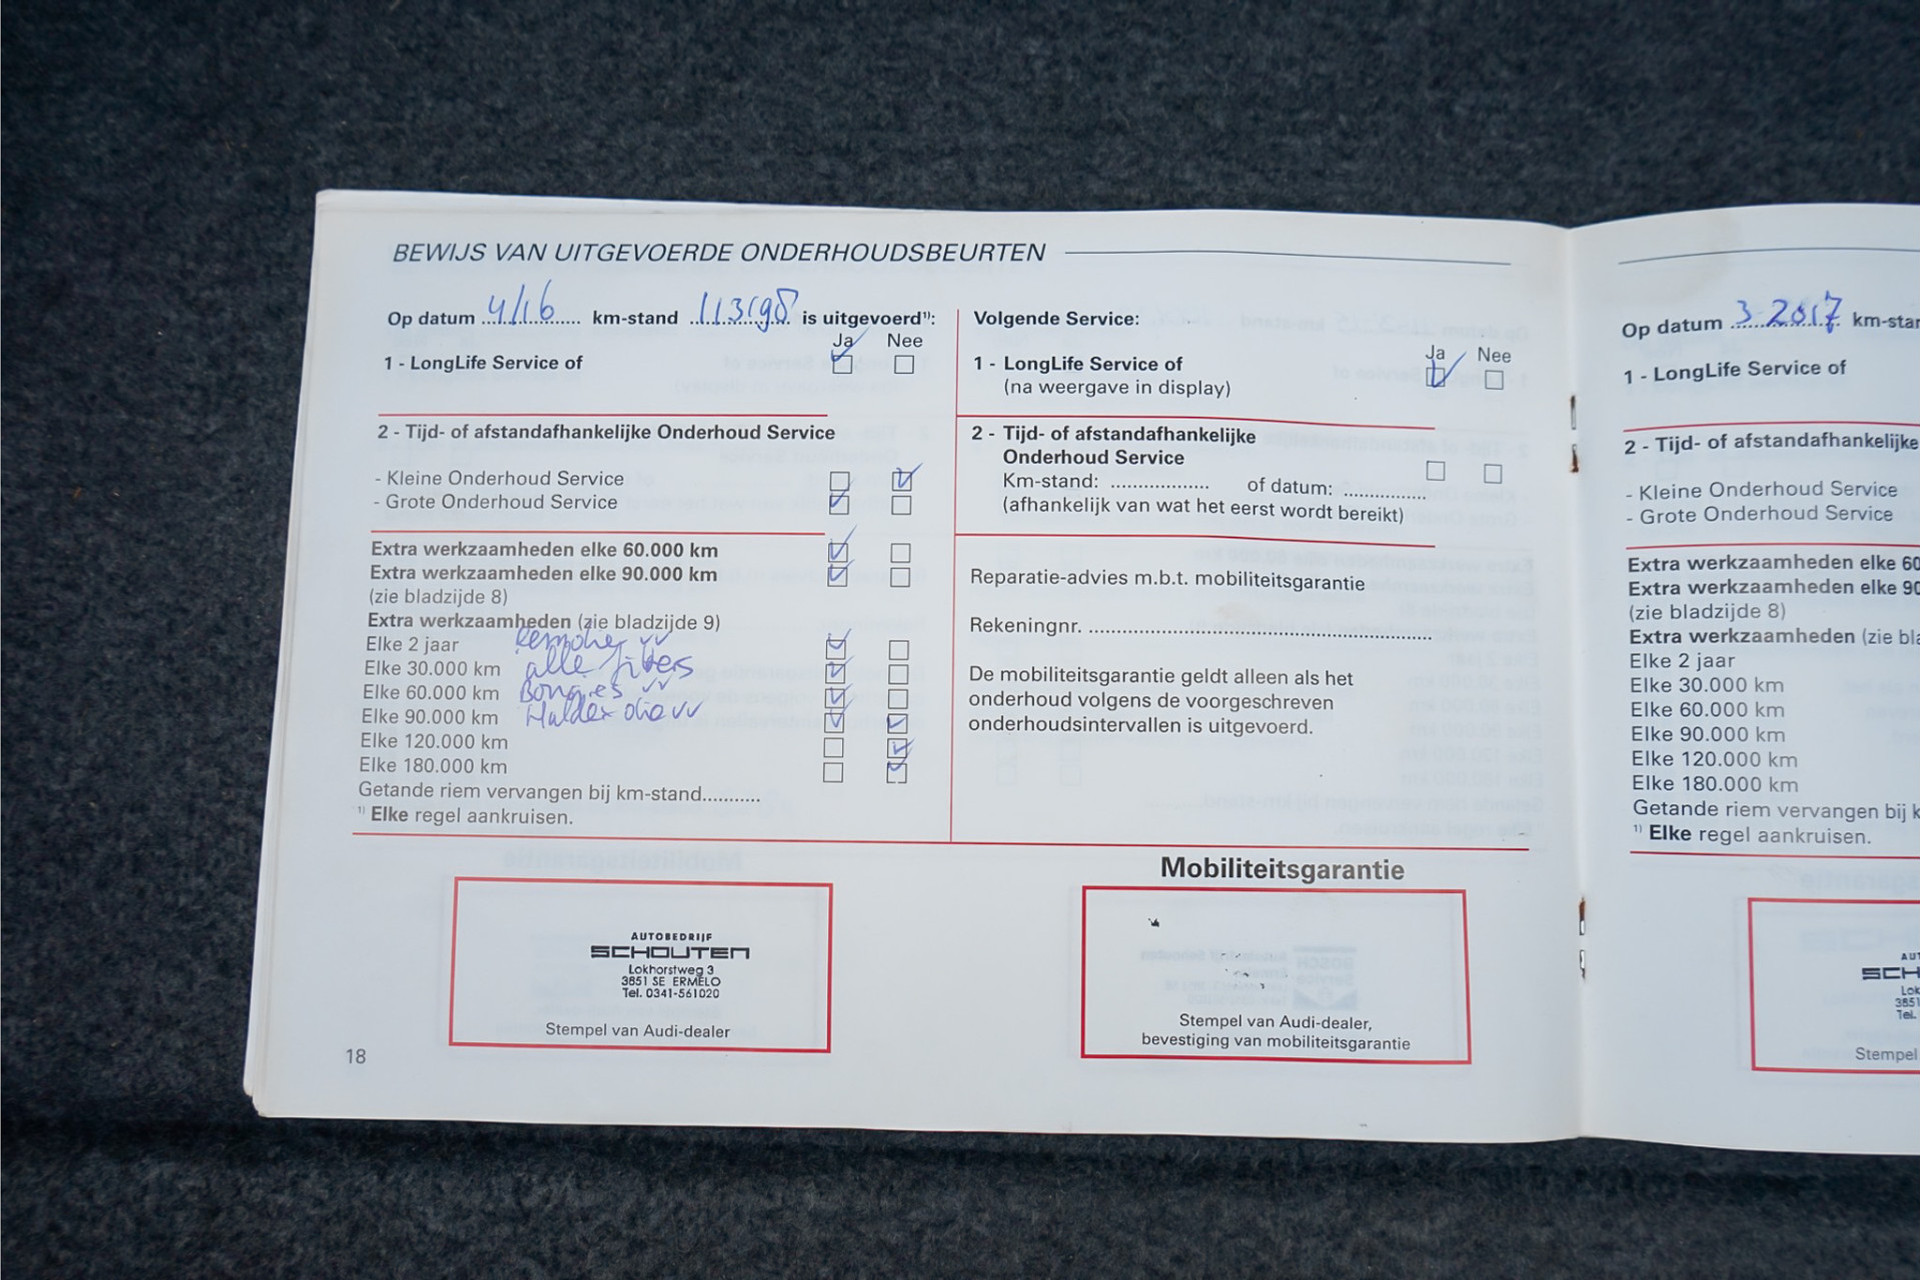 BEWIJS VAN UITGEVOERDE ONDERHOUDSBEURTEN
Op datum 4/16 km-stand 113198 is uitgevoerd¹⁾:
Ja Nee
1 - LongLife Service of
2 - Tijd- of afstandafhankelijke Onderhoud Service
- Kleine Onderhoud Service
- Grote Onderhoud Service
Extra werkzaamheden elke 60.000 km
Extra werkzaamheden elke 90.000 km
(zie bladzijde 8)
Extra werkzaamheden (zie bladzijde 9)
Elke 2 jaar
Elke 30.000 km alle filters
Elke 60.000 km Bougies vv
Elke 90.000 km Haldex olie vv
Elke 120.000 km
Elke 180.000 km
Getande riem vervangen bij km-stand...........
¹⁾ Elke regel aankruisen.
AUTOBEDRIJF
SCHOUTEN
Lokhorstweg 3
3851 SE ERMELO
Tel. 0341-561020
Stempel van Audi-dealer
18
Volgende Service:
Ja Nee
1 - LongLife Service of
(na weergave in display)
2 - Tijd- of afstandafhankelijke
Onderhoud Service
Km-stand: .................. of datum: ...............
(afhankelijk van wat het eerst wordt bereikt)
Reparatie-advies m.b.t. mobiliteitsgarantie
Rekeningnr. ..............................................................
De mobiliteitsgarantie geldt alleen als het
onderhoud volgens de voorgeschreven
onderhoudsintervallen is uitgevoerd.
Mobiliteitsgarantie
Stempel van Audi-dealer,
bevestiging van mobiliteitsgarantie
Op datum 3-2017 km-star
1 - LongLife Service of
2 - Tijd- of afstandafhankelijke
- Kleine Onderhoud Service
- Grote Onderhoud Service
Extra werkzaamheden elke 60
Extra werkzaamheden elke 90
(zie bladzijde 8)
Extra werkzaamheden (zie bla
Elke 2 jaar
Elke 30.000 km
Elke 60.000 km
Elke 90.000 km
Elke 120.000 km
Elke 180.000 km
Getande riem vervangen bij k
¹⁾ Elke regel aankruisen.
AUT
SCH
Lok
3851
Tel.
Stempel